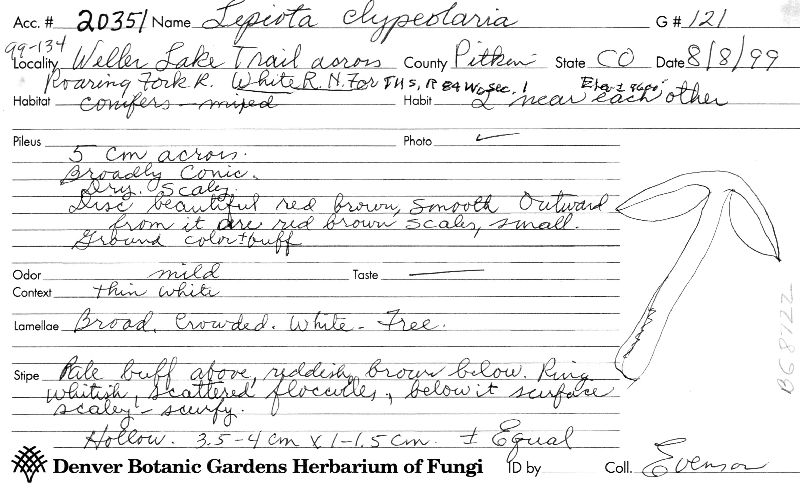 Acc. # 20351 Name Lepiota clypeolaria G # 121
99-134
Locality Weller Lake Trail across County Pitkin State CO Date 8/8/99
Roaring Fork R. White R. N. For T11S, R84W, Sec. 1 Elev ± 9600'
Habitat conifers - mixed Habit 2 near each other
Pileus Photo ✓
5 cm across.
Broadly Conic.
Dry. Scaley.
Disc beautiful red brown, smooth Outward
from it are red brown scales, small.
Ground color ± buff
Odor mild Taste —
Context thin white
Lamellae Broad. Crowded. White - Free.
Stipe Pale buff above, reddish brown below. Ring
whitish, scattered floccules, below it surface
scaley - scurfy.
Hollow. 3.5-4 cm x 1-1.5 cm. ± Equal
Denver Botanic Gardens Herbarium of Fungi ID by Coll. Evenson
B68122